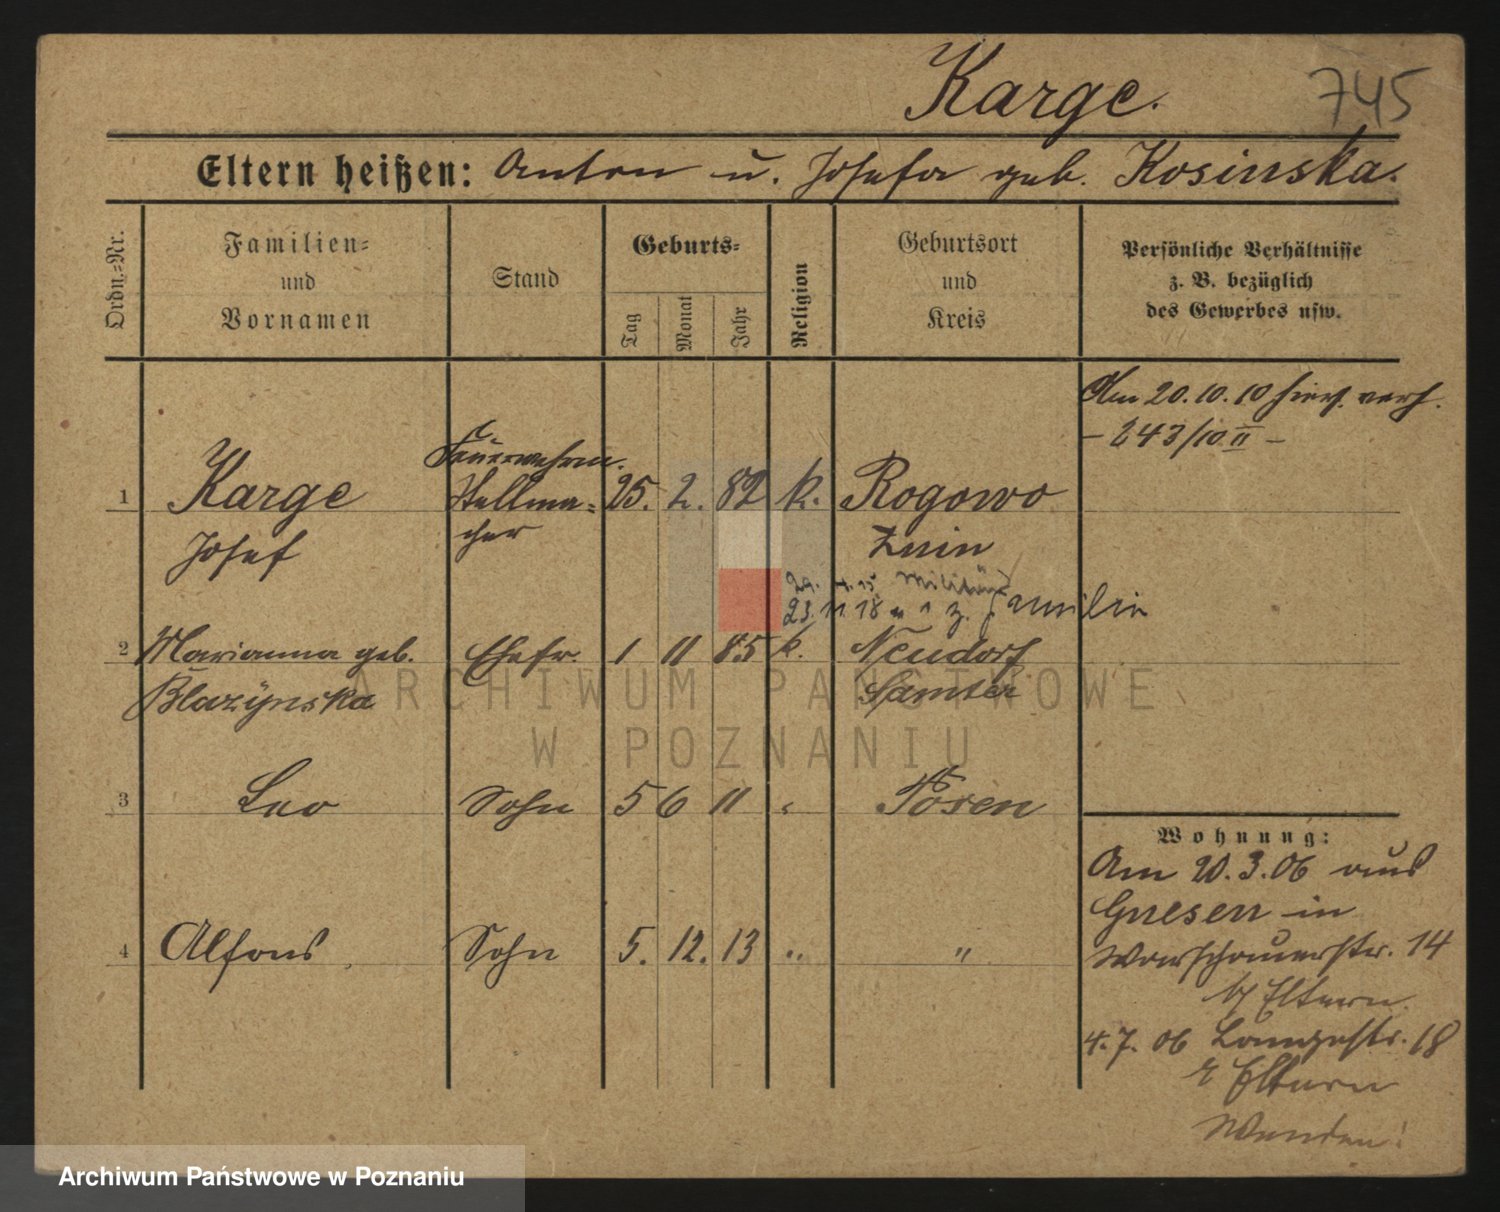 Karge.
745
Eltern heißen: Anton u. Josefa geb. Kosinska.
Ordn.=Nr.
Familien=
und
Vornamen
Stand
Geburts=
Tag
Monat
Jahr
Religion
Geburtsort
und
Kreis
Persönliche Verhältnisse
z. B. bezüglich
des Gewerbes usw.
Am 20.10.10 hier verh.
- 243/10 II -
1
Karge
Josef
Feuerwehrm.
Stellma=
cher
25. 2. 82 k.
Rogowo
Znin
29. 4. 15 Militär
23. 11. 18 " " z. Familie
2
Marianna geb.
Blazÿnska
Ehefr.
1 11 85 k.
Neudorf
Samter
3
Leo
Sohn
5 6 11 "
Posen
4
Alfons
Sohn
5. 12. 13 "
"
Wohnung:
Am 20.3.06 aus
Gnesen in
Warschauerstr. 14
b/ Eltern.
4.7.06 Langestr. 18
Eltern
Wenden!
ARCHIWUM PAŃSTWOWE
W POZNANIU
Archiwum Państwowe w Poznaniu